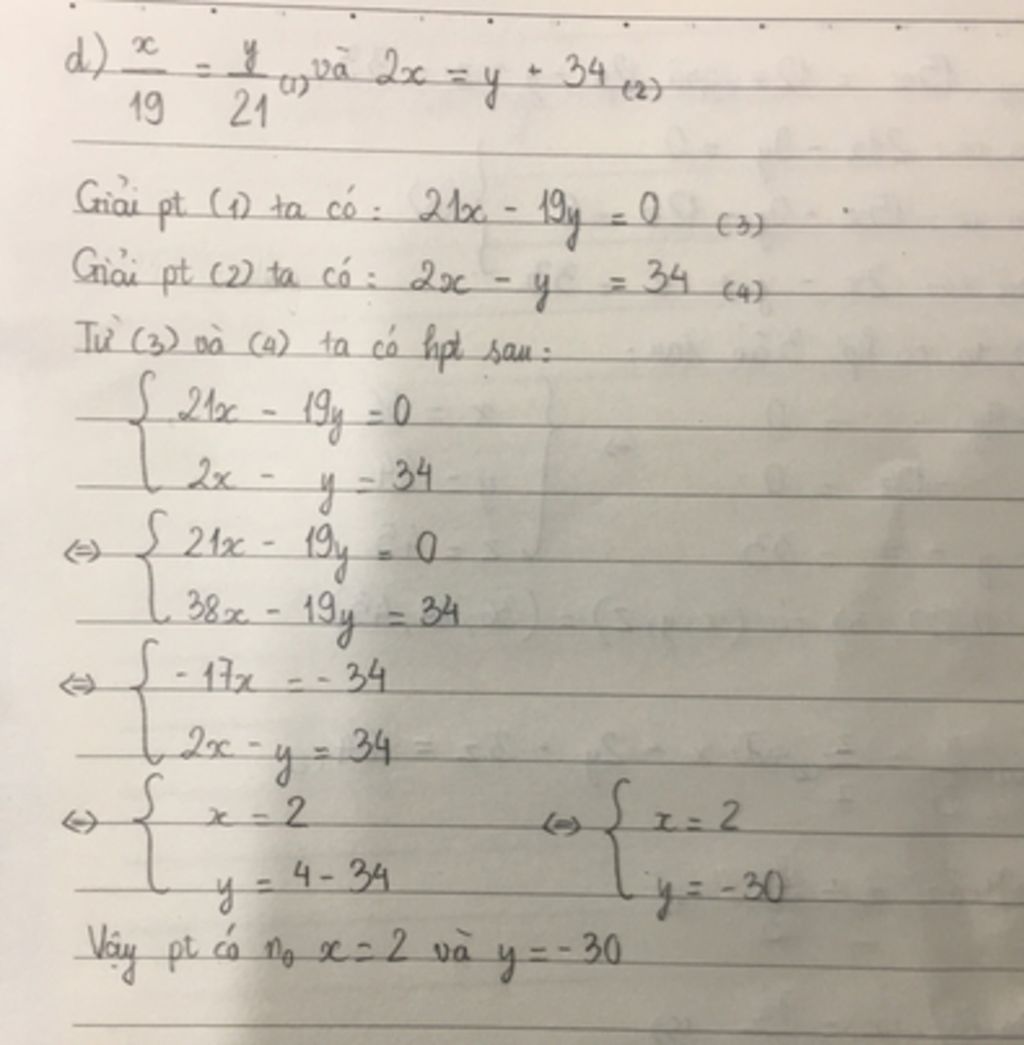 d) x/19 = y/21 (1) và 2x = y + 34 (2)
Giải pt (1) ta có: 21x - 19y = 0 (3)
Giải pt (2) ta có: 2x - y = 34 (4)
Từ (3) và (4) ta có hpt sau:
{ 21x - 19y = 0
2x - y = 34
⇔ { 21x - 19y = 0
38x - 19y = 34
⇔ { -17x = -34
2x - y = 34
⇔ { x = 2 ⇔ { x = 2
y = 4 - 34 y = -30
Vậy pt có n₀ x = 2 và y = -30